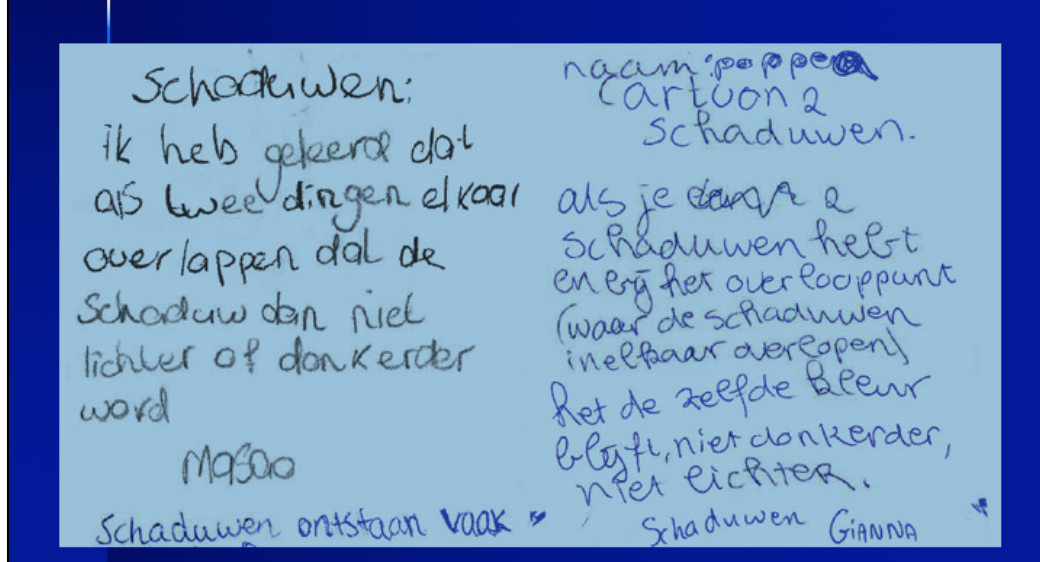 Schaduwen:
ik heb geleerd dat
als twee dingen elkaar
overlappen dat de
schaduw dan niet
lichter of donkerder
word
Masao
Schaduwen ontstaan vaak
naam: poppe
Cartoon 2
schaduwen.
als je 2
schaduwen hebt
en bij het overlooppunt
(waar de schaduwen
inelkaar overlopen)
het de zelfde kleur
blijft, niet donkerder,
niet lichter.
Schaduwen GIANNA